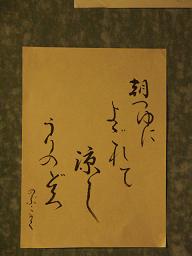 朝つゆに
よごれて
涼し
うりのどろ